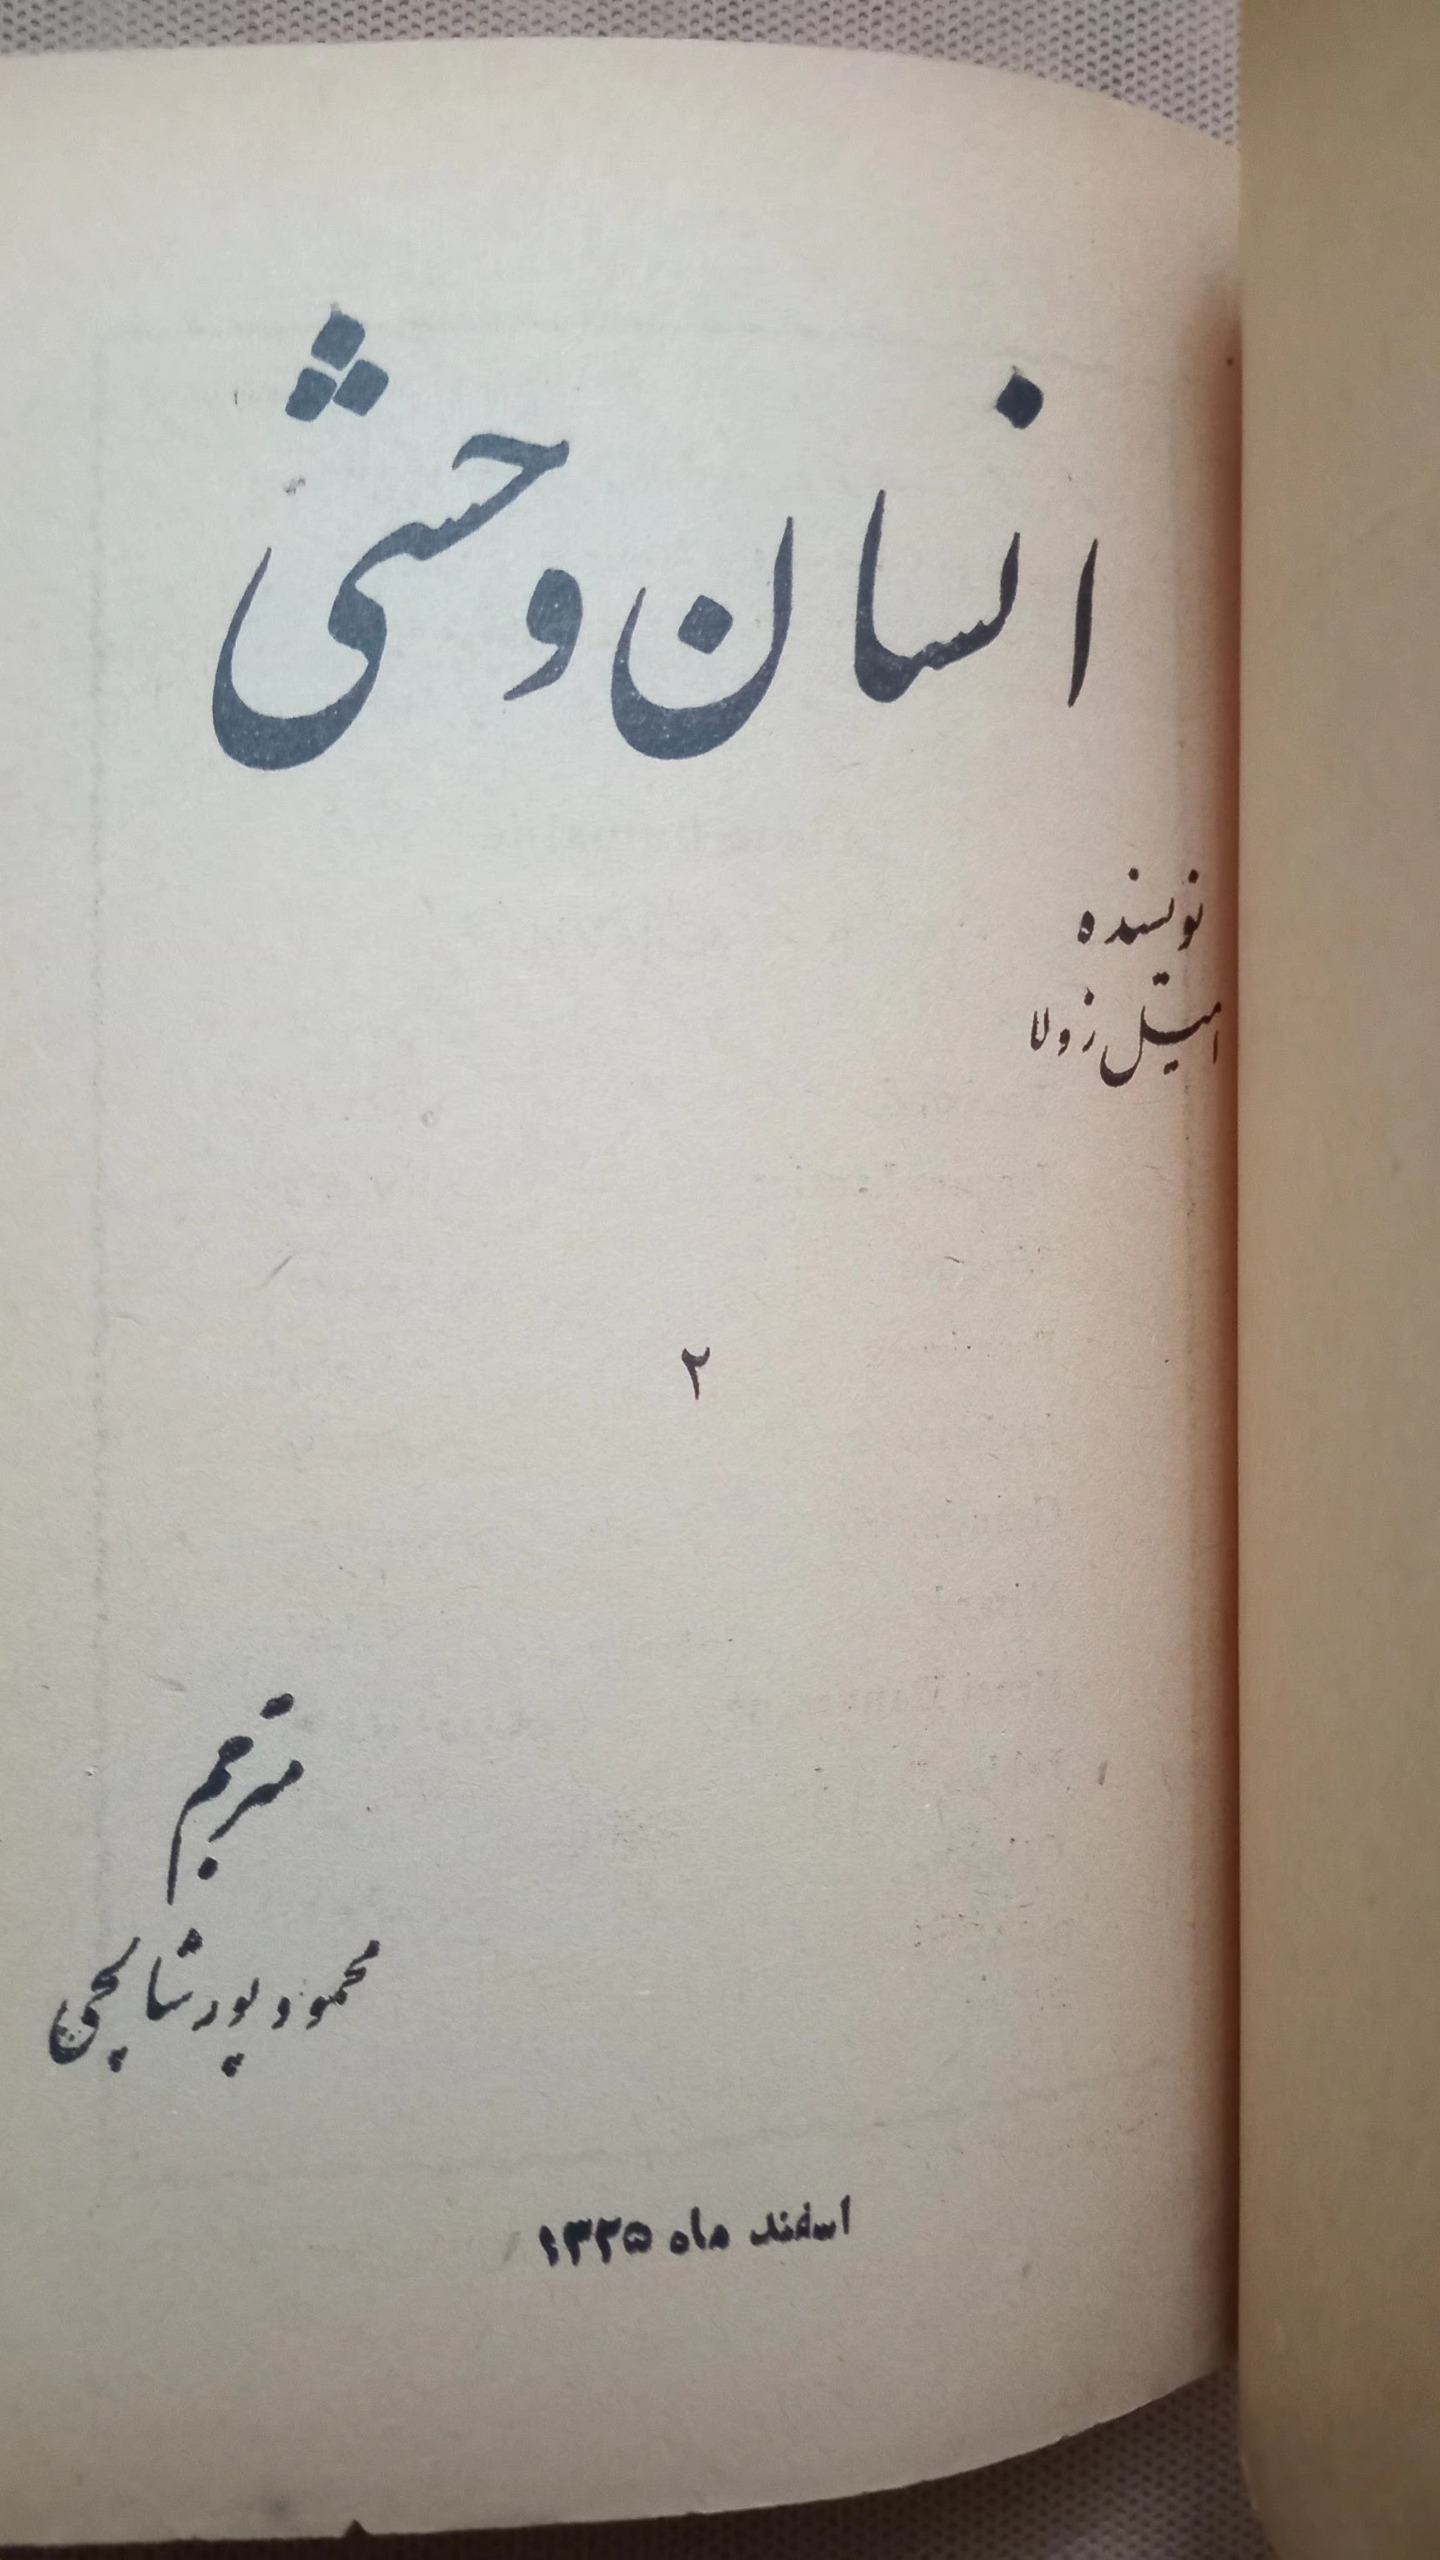 انسان وحشی
نویسنده
امیل زولا
۲
مترجم
محمود پور شالچی
اسفند ماه ۱۳۳۵